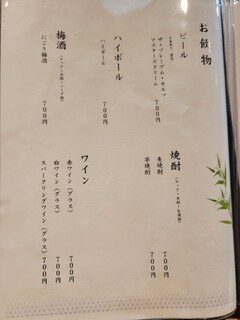 お飲物
ビール
ザ・プレミアム・モルツ
マスターズドリーム
700円
ハイボール
ハイボール
700円
梅酒
にごり梅酒
700円
焼酎
麦焼酎 700円
芋焼酎 700円
ワイン
赤ワイン(グラス) 700円
白ワイン(グラス) 700円
スパークリングワイン(グラス) 700円